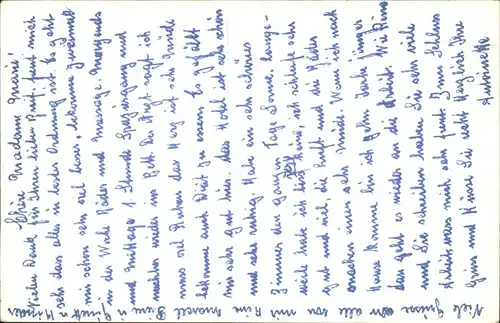 Chère Madame Marie!
Vielen Dank für Ihren lieben Brief, freut mich
sehr dass alles in bester Ordnung ist. Es geht
mir schon sehr viel besser, bekomme zweimal
in der Woche Bäder und Massage. Morgends
und Mittags 1 Stunde Spaziergang und
nachher wieder ins Bett. Der Arzt sagt ich
muss viel Ruhen das Herz ist sehr müde
bekomme auch Diät zu essen. Es gefällt
mir sehr gut hier. Das Hotel ist sehr schön
und sehr ruhig. Habe ein sehr schönes
Zimmer den ganzen Tag Sonne, Lange-
weile habe ich hier keine, ich schlafe sehr
gut und viel, die Luft und die Bäder
machen einen sehr müde. Wenn ich nach
Hause komme bin ich zehn Jahre jünger
dann geht es wieder an die Arbeit. Wie Sie
mir schreiben haben Sie sehr viele
Arbeit was mich sehr freut. Zum Schluss
Gruss und Küsse Sie recht Herzlich Ihre
Antoinette
Viele Grüsse an alle von mir